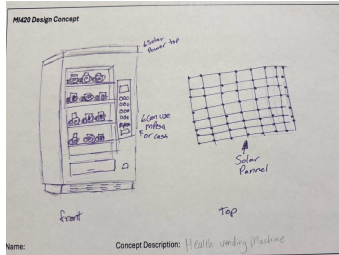 MI420 Design Concept
Solar
Power top
Can use
Mpesa
For cash
Solar
Pannel
front
Top
Name:
Concept Description: Health vending Machine